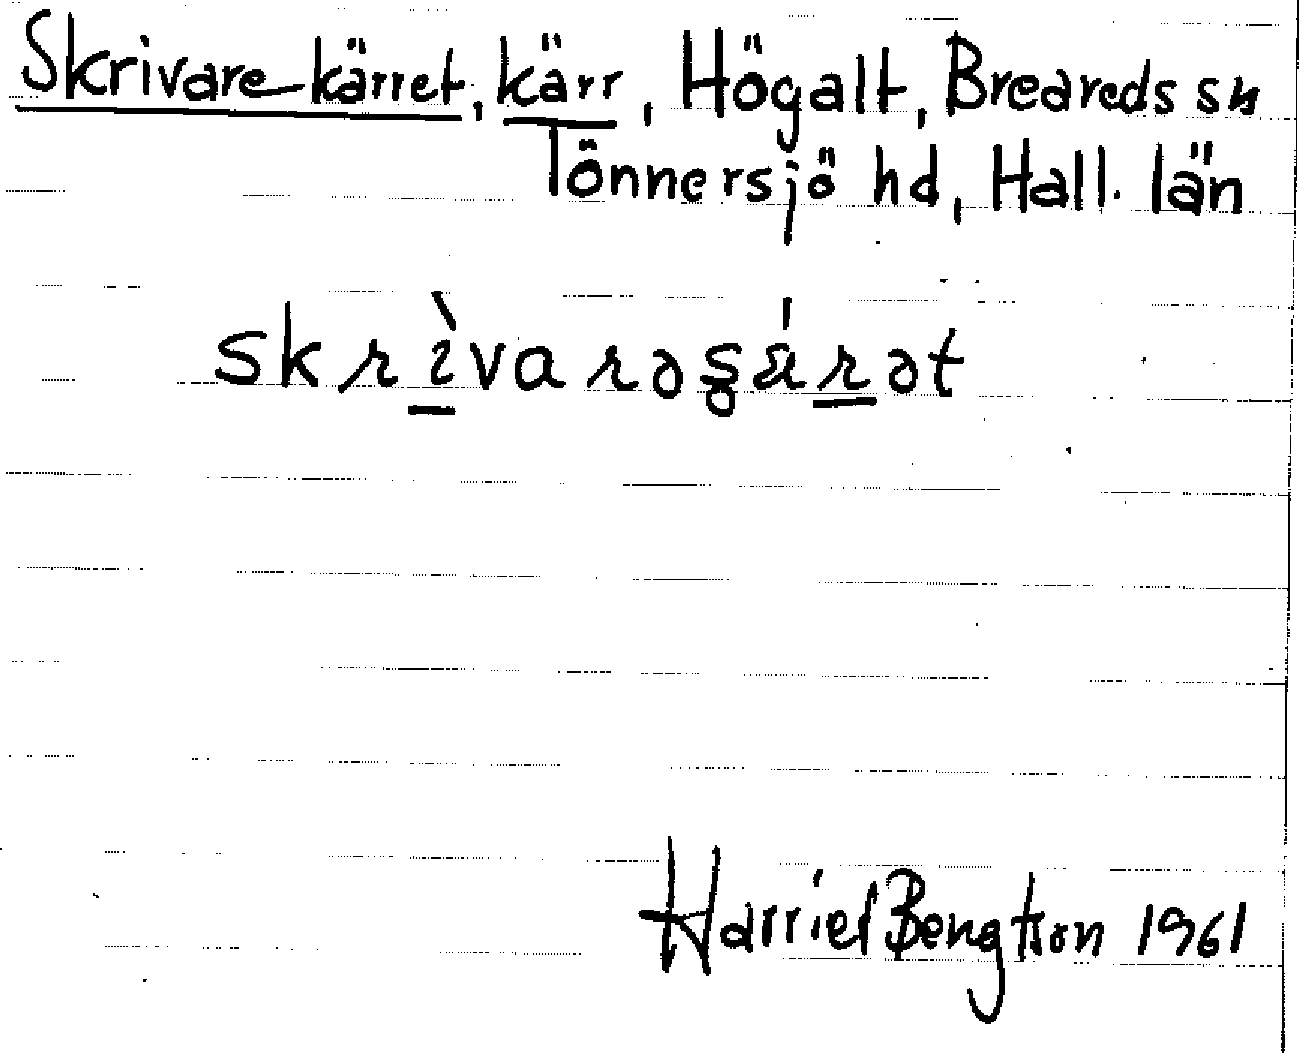 Skrivare-kärret, kärr, Högalt, Breareds sn
Tönnersjö hd, Hall. län
skrìvarəʂä́rət
Harriet Bengtson 1961